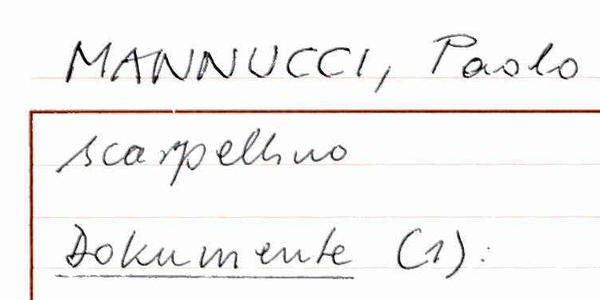 MANNUCCI, Paolo
scarpellino
Dokumente (1):